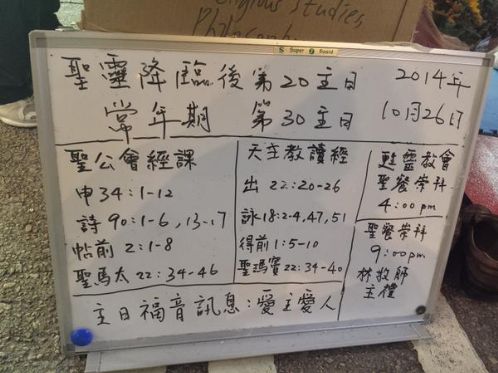 Religious Studies
Super Board
聖靈降臨後第20主日
2014年
常年期 第30主日
10月26日
聖公會經課
申34:1-12
詩90:1-6,13-17
帖前 2:1-8
聖馬太22:34-46
天主教讀經
出 22:20-26
詠18:2-4,47,51
得前1:5-10
聖瑪竇22:34-40
甦靈教會
聖餐崇拜
4:00pm
聖餐崇拜
9:00pm
林牧師
主禮
主日福音訊息:愛主愛人